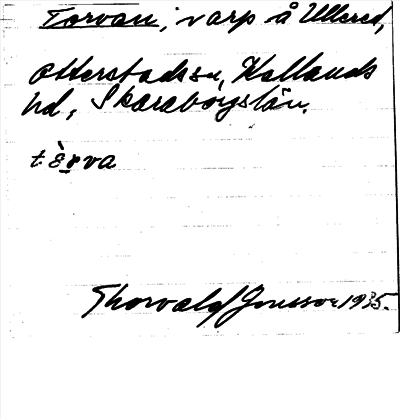 Torvan, varp å Ullersd,
Otterstads sn, Kållands
hd, Skaraborgs län.
t.è̱rva
Thorvald Jonsson 1935.